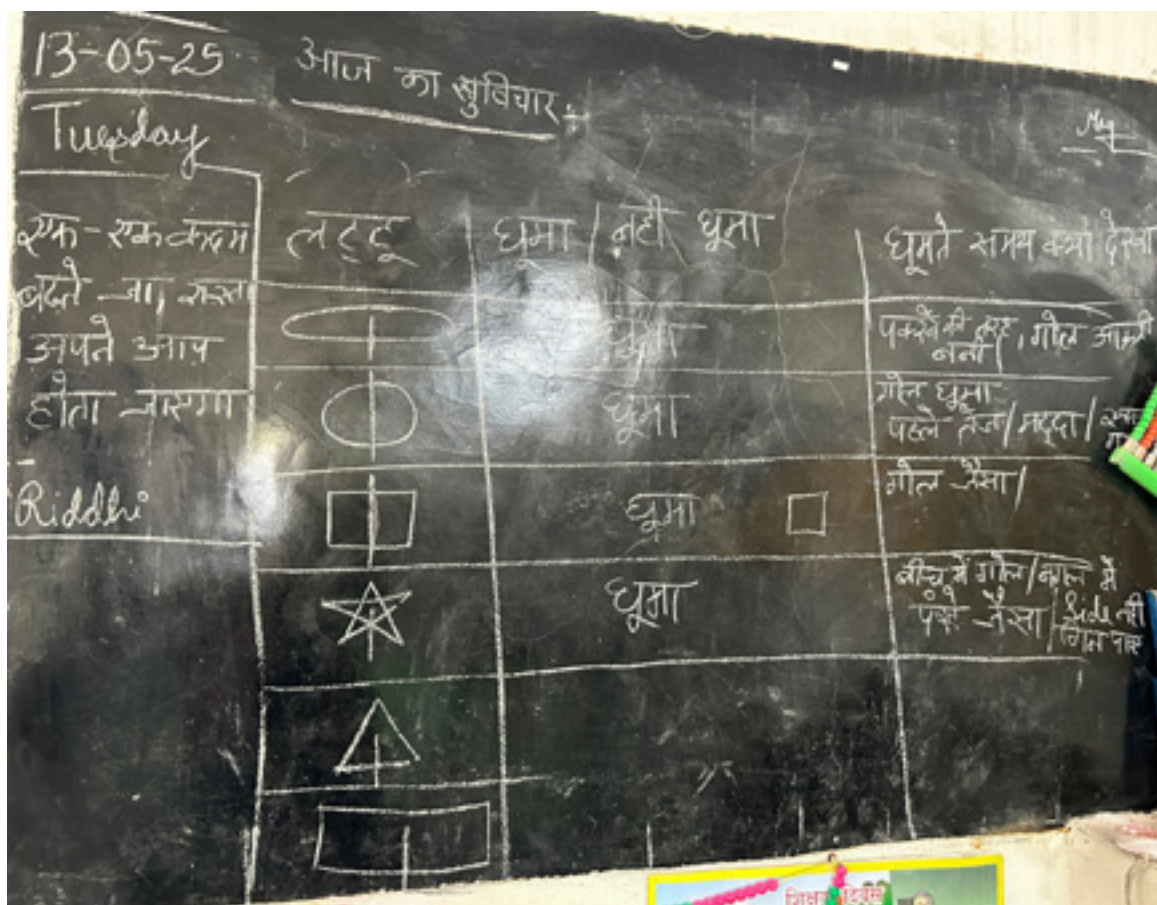 13-05-25
आज का सुविचार :-
Tuesday
एक - एक कदम
बढ़ते जा, रास्ता
अपने आप
होता जाएगा
Riddhi
लट्टू
घूमा / नही घूमा
घूमते समय क्या देखा
घूमा
की तरह, गोल
बनी /
घूमा
गोल घूमा
पहले तेज / /
घूमा
गोल जैसा /
घूमा
बीच में गोल / बगल में
पंखे जैसा / Side नही
गिन पाए
शिक्षक दिवस